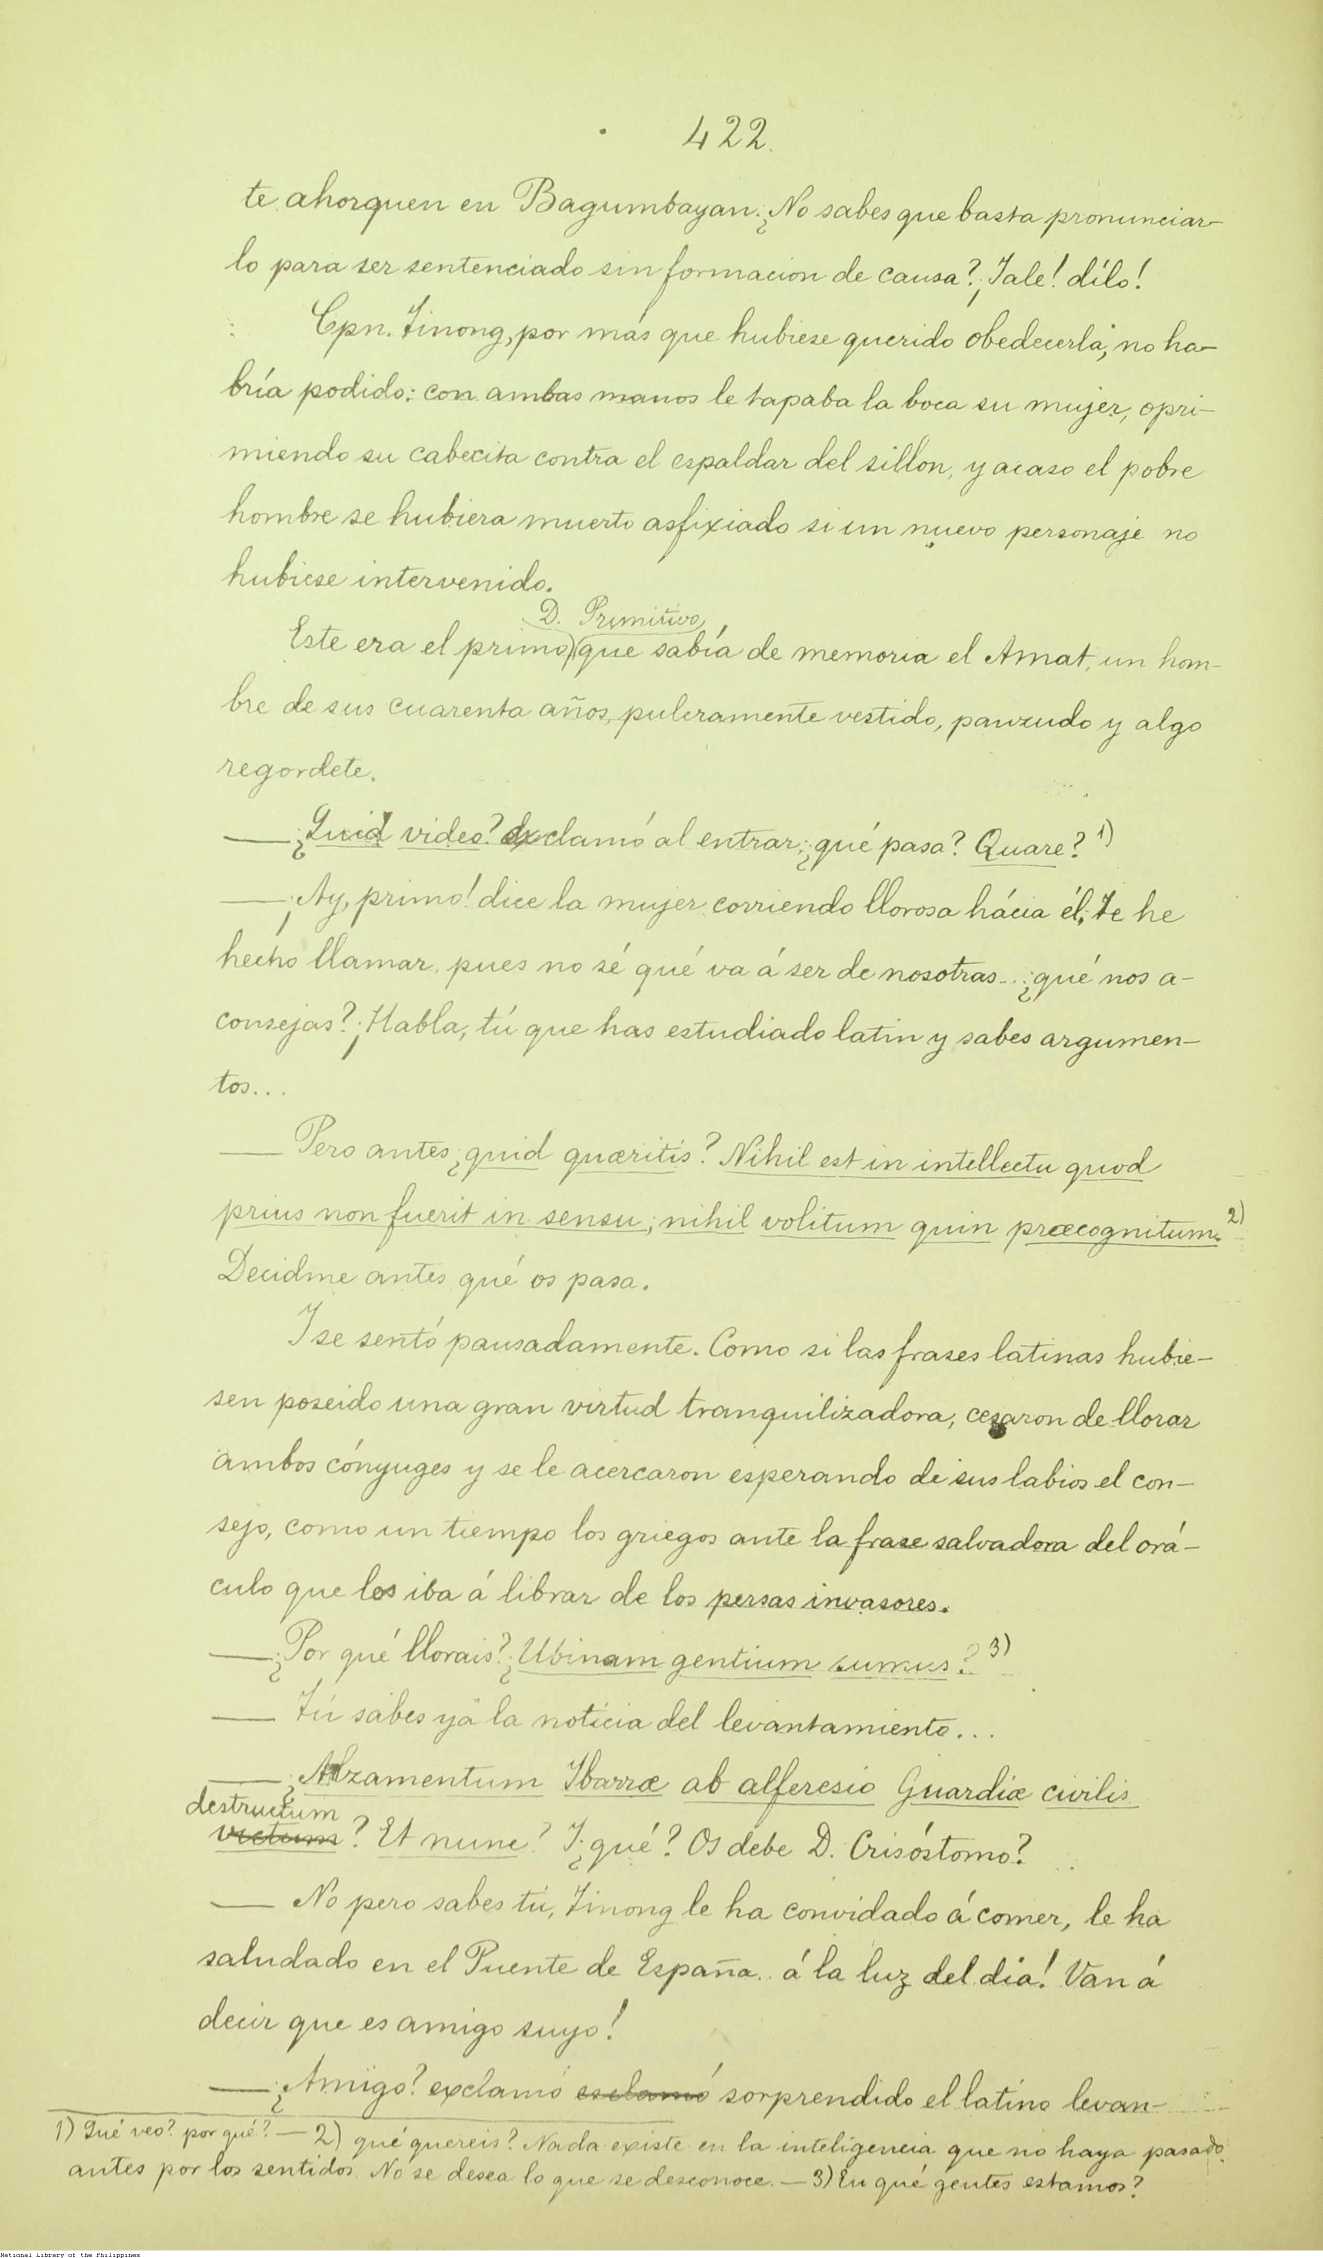 422.
te ahorquen en Bagumbayan. ¿No sabes que basta pronunciar-
lo para ser sentenciado sin formacion de causa? ¡Jale! dílo!
Cpn. Tinong, por más que hubiese querido obedecerla, no ha-
bría podido: con ambas manos le tapaba la boca su mujer, opri-
miendo su cabecita contra el espaldar del sillon, y acaso el pobre
hombre se hubiera muerto asfixiado si un nuevo personaje no
hubiese intervenido.
D. Primitivo,
Este era el primo que sabía de memoria el Amat, un hom-
bre de sus cuarenta años, pulcramente vestido, panzudo y algo
regordete.
— ¿Quid video? exclamó al entrar; ¿qué pasa? Quare? 1)
— ¡Ay, primo! dice la mujer corriendo llorosa hácia él; te he
hecho llamar, pues no sé qué va á ser de nosotras... ¿qué nos a-
consejas? ¡Habla, tú que has estudiado latin y sabes argumen-
tos...
— Pero antes ¿quid quæritis? Nihil est in intellectu quod
prius non fuerit in sensu; nihil volitum quin præcognitum. 2)
Decidme antes qué os pasa.
Y se sentó pausadamente. Como si las frases latinas hubie-
sen poseido una gran virtud tranquilizadora, cesaron de llorar
ambos cónyuges y se le acercaron esperando de sus labios el con-
sejo, como un tiempo los griegos ante la frase salvadora del orá-
culo que los iba á librar de los persas invasores.
— ¿Por qué llorais? ¿Ubinam gentium sumus? 3)
— Tú sabes yá la noticia del levantamiento...
— ¿Alzamentum Ibarræ ab alferesio Guardiæ civilis
destructum
victum? Et nunc? Y ¿qué? Os debe D. Crisóstomo?
— No pero sabes tú, Tinong le ha convidado á comer, le ha
saludado en el Puente de España.. á la luz del dia! Van á
decir que es amigo suyo!
— ¿Amigo? exclamó esclamó sorprendido el latino levan-
1) Qué veo? por qué? — 2) qué quereis? Nada existe en la inteligencia que no haya pasado
antes por los sentidos. No se desea lo que se desconoce. — 3) En qué gentes estamos?
National Library of the Philippines